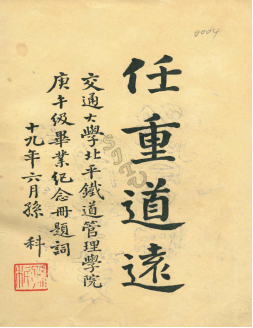 任重道遠
交通大學北平鐵道管理學院
庚午級畢業紀念冊題詞
十九年六月孫科
0004